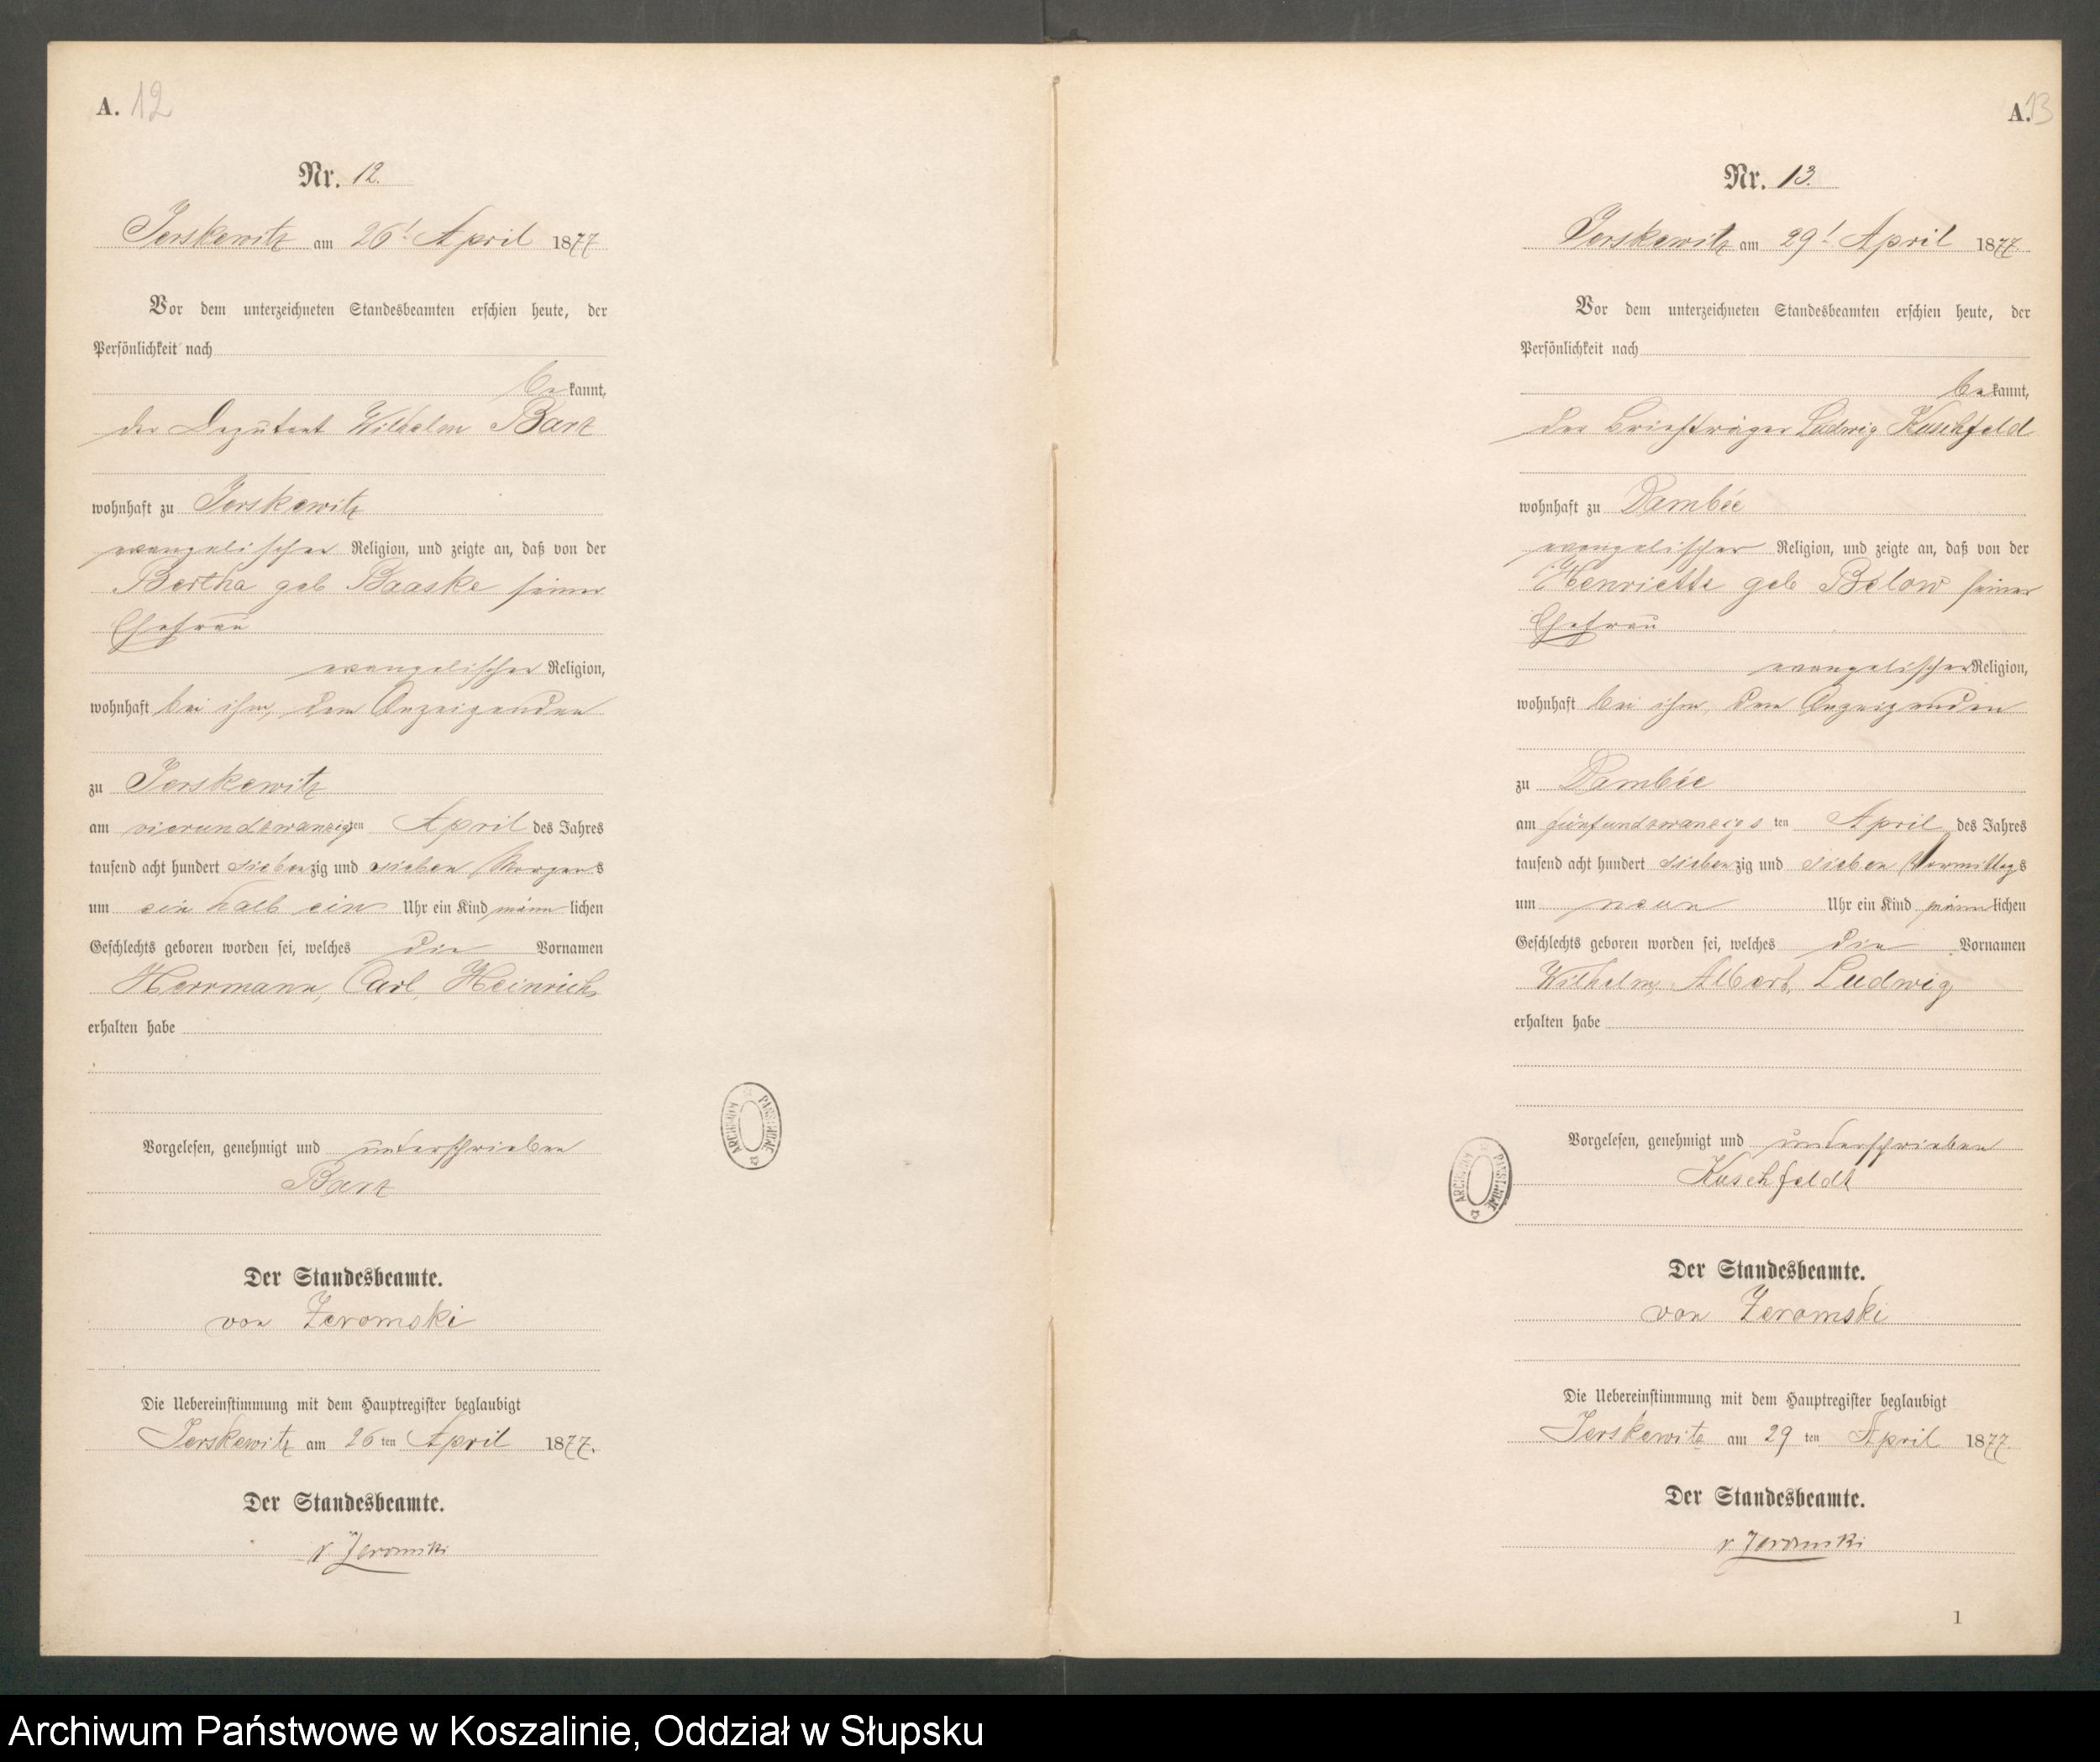 A. 12
Nr. 12.
Jerskewitz am 26t April 1877
Vor dem unterzeichneten Standesbeamten erschien heute, der
Persönlichkeit nach
bekannt,
der Deputant Wilhelm Barz
wohnhaft zu Jerskewitz
evangelischer Religion, und zeigte an, daß von der
Bertha geb Baaske seiner
Ehefrau
evangelischer Religion,
wohnhaft bei ihm, dem Anzeigenden
zu Jerskewitz
am vierundzwanzigsten April des Jahres
tausend acht hundert siebenzig und sieben Morgens
um ein halb ein Uhr ein Kind männlichen
Geschlechts geboren worden sei, welches die Vornamen
Herrmann, Carl, Heinrich
erhalten habe
Vorgelesen, genehmigt und unterschrieben
Barz
Der Standesbeamte.
von Zeromski
Die Uebereinstimmung mit dem Hauptregister beglaubigt
Jerskewitz am 26 ten April 1877.
Der Standesbeamte.
v Zeromski
ARCHIWUM PAŃSTWOWE
A. 13
Nr. 13.
Jerskewitz am 29t April 1877.
Vor dem unterzeichneten Standesbeamten erschien heute, der
Persönlichkeit nach
bekannt,
der Briefträger Ludwig Kuschfeld
wohnhaft zu Dambée
evangelischer Religion, und zeigte an, daß von der
Henriette geb Below seiner
Ehefrau
evangelischer Religion,
wohnhaft bei ihm, dem Anzeigenden
zu Dambée
am fünfundzwanzigsten April des Jahres
tausend acht hundert siebenzig und sieben Vormittags
um neun Uhr ein Kind männlichen
Geschlechts geboren worden sei, welches die Vornamen
Wilhelm, Albert, Ludwig
erhalten habe
Vorgelesen, genehmigt und unterschrieben
Kuschfeldt
ARCHIWUM PAŃSTWOWE
Der Standesbeamte.
von Zeromski
Die Uebereinstimmung mit dem Hauptregister beglaubigt
Jerskewitz am 29 ten April 1877.
Der Standesbeamte.
v Zeromski
1
Archiwum Państwowe w Koszalinie, Oddział w Słupsku